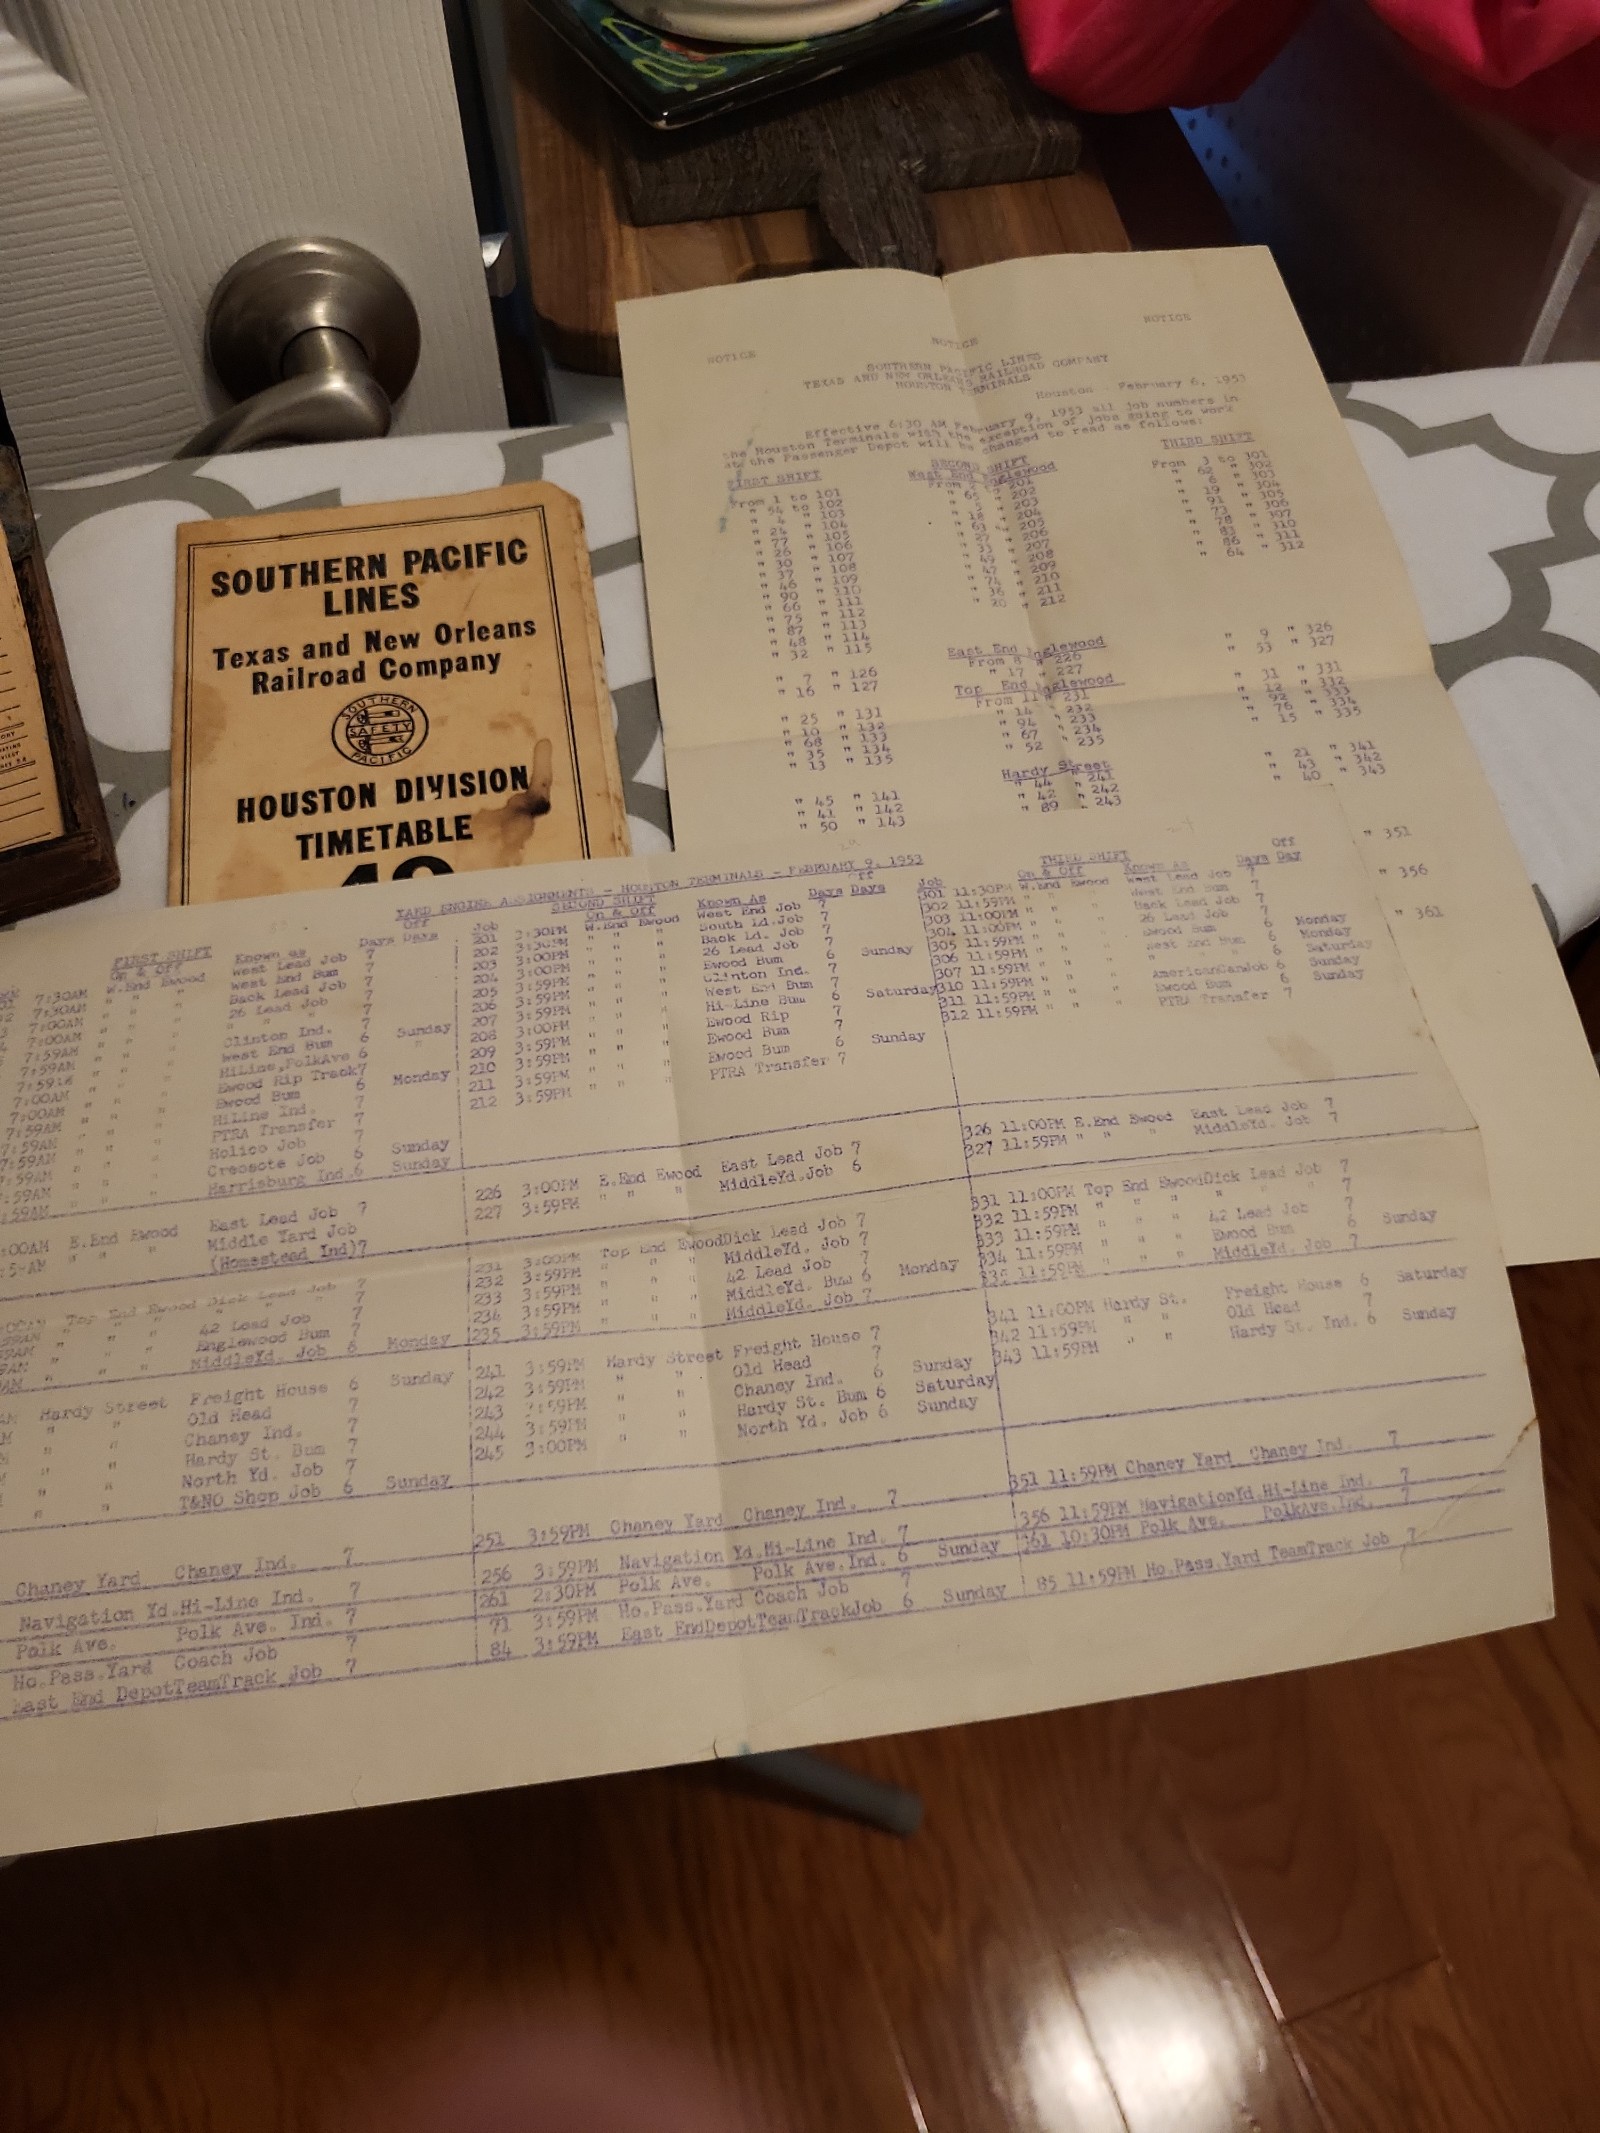 SOUTHERN PACIFIC
LINES
Texas and New Orleans
Railroad Company
SOUTHERN
SAFETY
PACIFIC
HOUSTON DIVISION
TIMETABLE
NOTICE NOTICE NOTICE
SOUTHERN PACIFIC LINES
TEXAS AND NEW ORLEANS RAILROAD COMPANY
HOUSTON TERMINALS
Houston February 6, 1953
Effective 6:30 AM February 9, 1953 all job numbers in
the Houston Terminals with the exception of jobs going to work
at the Passenger Depot will be changed to read as follows:
FIRST SHIFT
From 1 to 101
" 54 to 102
" 4 " 103
" 24 " 104
" 77 " 105
" 26 " 106
" 30 " 107
" 37 " 108
" 46 " 109
" 90 " 110
" 66 " 111
" 75 " 112
" 87 " 113
" 48 " 114
" 32 " 115
" 7 " 126
" 16 " 127
" 25 " 131
" 10 " 132
" 68 " 133
" 35 " 134
" 13 " 135
" 45 " 141
" 41 " 142
" 50 " 143
SECOND SHIFT
West End Englewood
From 201
" 65 " 202
" 203
" 18 " 204
" 63 " 205
" 27 " 206
" 33 " 207
" 208
" 47 " 209
" 74 " 210
" 36 " 211
" 20 " 212
East End Englewood
From 8 " 226
" 17 " 227
Top End Englewood
From 11 " 231
" 14 " 232
" 94 " 233
" 67 " 234
" 52 " 235
Hardy Street
" 44 " 241
" 42 " 242
" 89 " 243
THIRD SHIFT
From 3 to 301
" 62 " 302
" 6 " 303
" 19 " 304
" 91 " 305
" 73 " 306
" 78 " 307
" 83 " 310
" 86 " 311
" 64 " 312
" 9 " 326
" 53 " 327
" 31 " 331
" 12 " 332
" 92 " 333
" 76 " 334
" 15 " 335
" 21 " 341
" 43 " 342
" 40 " 343
" 351
" 356
" 361
YARD ENGINE ASSIGNMENTS - HOUSTON TERMINALS - FEBRUARY 9, 1953
FIRST SHIFT
On & Off Known as Days Off Days
7:30AM W.End Ewood West Lead Job 7
7:30AM " " " West End Bum 7
7:00AM " " " Back Lead Job 7
7:00AM " " " 26 Lead Job 7
7:59AM " " "
7:59AM " " " Clinton Ind. 7
West End Bum 6 Sunday
7:00AM " " " HiLine,PolkAve 6 "
7:00AM " " " Ewood Rip Track7
7:59AM " " " Ewood Bum 6 Monday
7:59AM " " " HiLine Ind. 7
7:59AM " " " PTRA Transfer 7
Holico Job 7
Creosote Job 6 Sunday
Harrisburg Ind.6 Sunday
E.End Ewood East Lead Job 7
" " " Middle Yard Job
(Homestead Ind)7
Top End Ewood Dick Lead Job 7
" " " " " " 7
" " " 42 Lead Job 7
" " " Englewood Bum 7
" " " MiddleYd. Job 6 Monday
Hardy Street Freight House 6 Sunday
" " Old Head 7
" " Chaney Ind. 7
" " Hardy St. Bum 7
" " North Yd. Job 7
" " T&NO Shop Job 6 Sunday
Chaney Yard Chaney Ind. 7
Navigation Yd.Hi-Line Ind. 7
Polk Ave. Polk Ave. Ind. 7
Ho.Pass.Yard Coach Job 7
East End DepotTeamTrack Job 7
SECOND SHIFT
Job On & Off Known As Days Off Days
201 3:30PM W.End Ewood West End Job 7
202 3:30PM " " " South Ld.Job 7
203 3:00PM " " " Back Ld. Job 7
204 3:00PM " " " 26 Lead Job 7
205 3:59PM " " " Ewood Bum 6 Sunday
206 3:59PM " " " Clinton Ind. 7
207 3:59PM " " " West End Bum 7
208 3:00PM " " " Hi-Line Bum 6 Saturday
209 3:59PM " " " Ewood Rip 7
210 3:59PM " " " Ewood Bum 7
211 3:59PM " " " Ewood Bum 6 Sunday
212 3:59PM " " " PTRA Transfer 7
226 3:00PM E.End Ewood East Lead Job 7
227 3:59PM " " " MiddleYd.Job 6
231 3:00PM Top End EwoodDick Lead Job 7
232 3:59PM " " " MiddleYd. Job 7
233 3:59PM " " " 42 Lead Job 7
234 3:59PM " " " MiddleYd. Bum 6 Monday
235 3:59PM " " " MiddleYd. Job 7
241 3:59PM Hardy Street Freight House 7
242 3:59PM " " Old Head 7
243 3:59PM " " Chaney Ind. 6 Sunday
244 3:59PM " " Hardy St. Bum 6 Saturday
245 3:00PM " " North Yd. Job 6 Sunday
251 3:59PM Chaney Yard Chaney Ind. 7
256 3:59PM Navigation Yd.Hi-Line Ind. 7
261 2:30PM Polk Ave. Polk Ave.Ind. 6 Sunday
71 3:59PM Ho.Pass.Yard Coach Job 7
84 3:59PM East EndDepotTeamTrackJob 6 Sunday
THIRD SHIFT
Job On & Off Known As Days Off Day
301 11:30PM W.End Ewood West Lead Job 7
302 11:59PM " " " West End Bum 7
303 11:00PM " " " Back Lead Job 7
304 11:00PM " " " 26 Lead Job 7
305 11:59PM " " " Ewood Bum 6 Monday
306 11:59PM " " " West End Bum 6 Monday
307 11:59PM " " " " " " 6 Saturday
310 11:59PM " " " AmericanCanJob 6 Sunday
311 11:59PM " " " Ewood Bum 6 Sunday
312 11:59PM " " " PTRA Transfer 7
326 11:00PM E.End Ewood East Lead Job 7
327 11:59PM " " " MiddleYd. Job 7
331 11:00PM Top End EwoodDick Lead Job 7
332 11:59PM " " " " " " 7
333 11:59PM " " " 42 Lead Job 7
334 11:59PM " " " Ewood Bum 6 Sunday
335 11:59PM " " " MiddleYd. Job 7
341 11:00PM Hardy St. Freight House 6 Saturday
342 11:59PM " " Old Head 7
343 11:59PM " " Hardy St. Ind. 6 Sunday
351 11:59PM Chaney Yard Chaney Ind. 7
356 11:59PM NavigationYd.Hi-Line Ind. 7
361 10:30PM Polk Ave. PolkAve.Ind. 7
85 11:59PM Ho.Pass.Yard TeamTrack Job 7